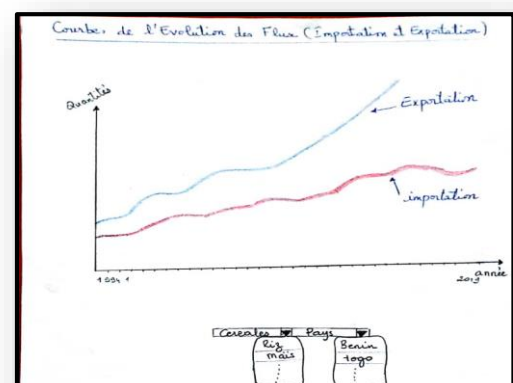 Courbe de l'Evolution des Flux (Importation et Exportation)
Quantités
Exportation
importation
année
2019
Cereales Pays
Riz Benin
mais togo